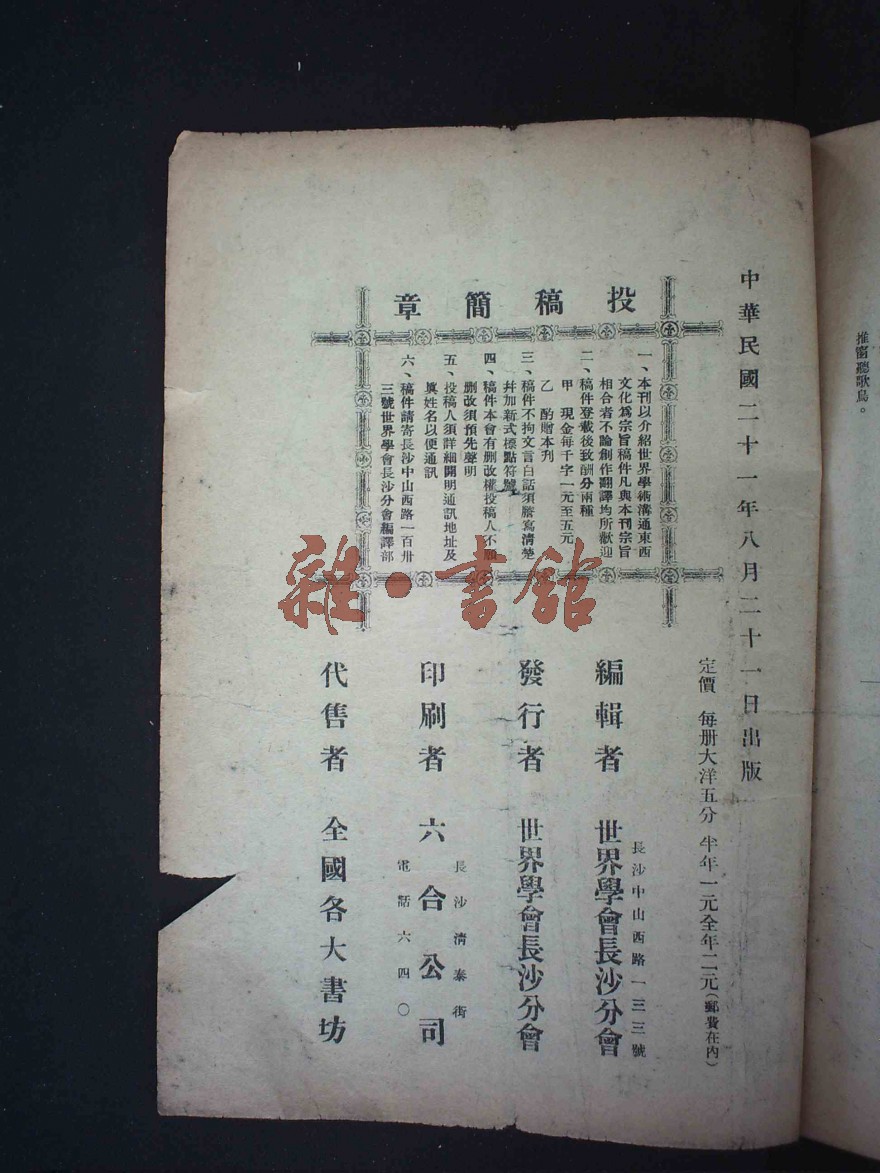 中華民國二十一年八月二十一日出版
定價　每册大洋五分　半年一元全年二元（郵費在內）
投稿簡章
一、本刊以介紹世界學術溝通東西
文化爲宗旨稿件凡與本刊宗旨
相合者不論創作翻譯均所歡迎
二、稿件登載後致酬分兩種
甲　現金每千字一元至五元
乙　酌贈本刊
三、稿件不拘文言白話須謄寫清楚
幷加新式標點符號
四、稿件本會有删改權投稿人不願
删改須預先聲明
五、投稿人須詳細開明通訊地址及
眞姓名以便通訊
六、稿件請寄長沙中山西路一百卅
三號世界學會長沙分會編譯部
編輯者　世界學會長沙分會
長沙中山西路一三三號
發行者　世界學會長沙分會
印刷者　六合公司
長沙清泰街
電話六四〇
代售者　全國各大書坊
推窗聽歌鳥。
雜·書館